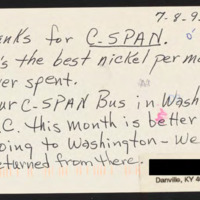 7-8-9
anks for C-SPAN.
's the best nickel per mo
ver spent.
ur C-SPAN Bus in Wash
.C. this month is better
oing to Washington - We
eturned from there.
Danville, KY 4